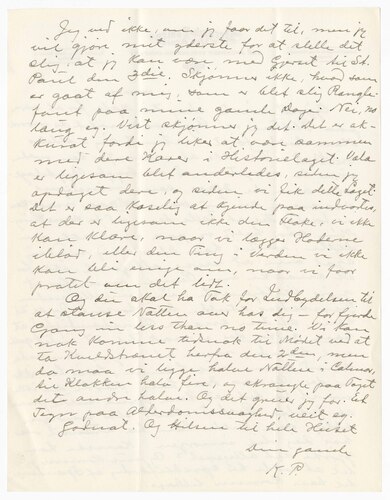 Jeg ved ikke, om jeg faar det til, men jeg
vil gjøre mit yderste for at stelle det
slig, at jeg kan være med Gjerset til St.
Paul den 3die. Skjønner ikke, hvad som
er gaat af mig, som er blet slig Rangle-
fant paa mine gamle Dage. Nei, no
laug eg. Vist skjønner jeg det. Det er ak-
kurat fordi jeg liker at være sammen
med dere Karer i Historielaget. Vala
er ligesom blet anderledes, siden jeg
opdaget dere, og siden vi fik dette Laget.
Det er saa koselig at kjende paa indvortes,
at der er ligesom ikke den Floke, vi ikke
kan klare, naar vi lægger Hoderne
iblød, eller den Ting i Verden vi ikke
kan bli enige om, naar vi faar
pratet om det lidt.
Og du skal ha Tak for Indbydelsen til
at stanse Natten over hos dig – for fjerde
Gang in less than no time. Vi kan
nok komme tidnok til Mødet ved at
ta Kveldstrænet herfra den 2den, men
da maa vi ligge halve Natten i Calmar,
til Klokken halv fire, og skrangle paa Toget
det andre halve. Og det gruer jeg for. Et
Tegn paa Alderdomssvaghed, veit eg.
Godnat. Og Hilsen til hele Huset
Din gamle
K. P.